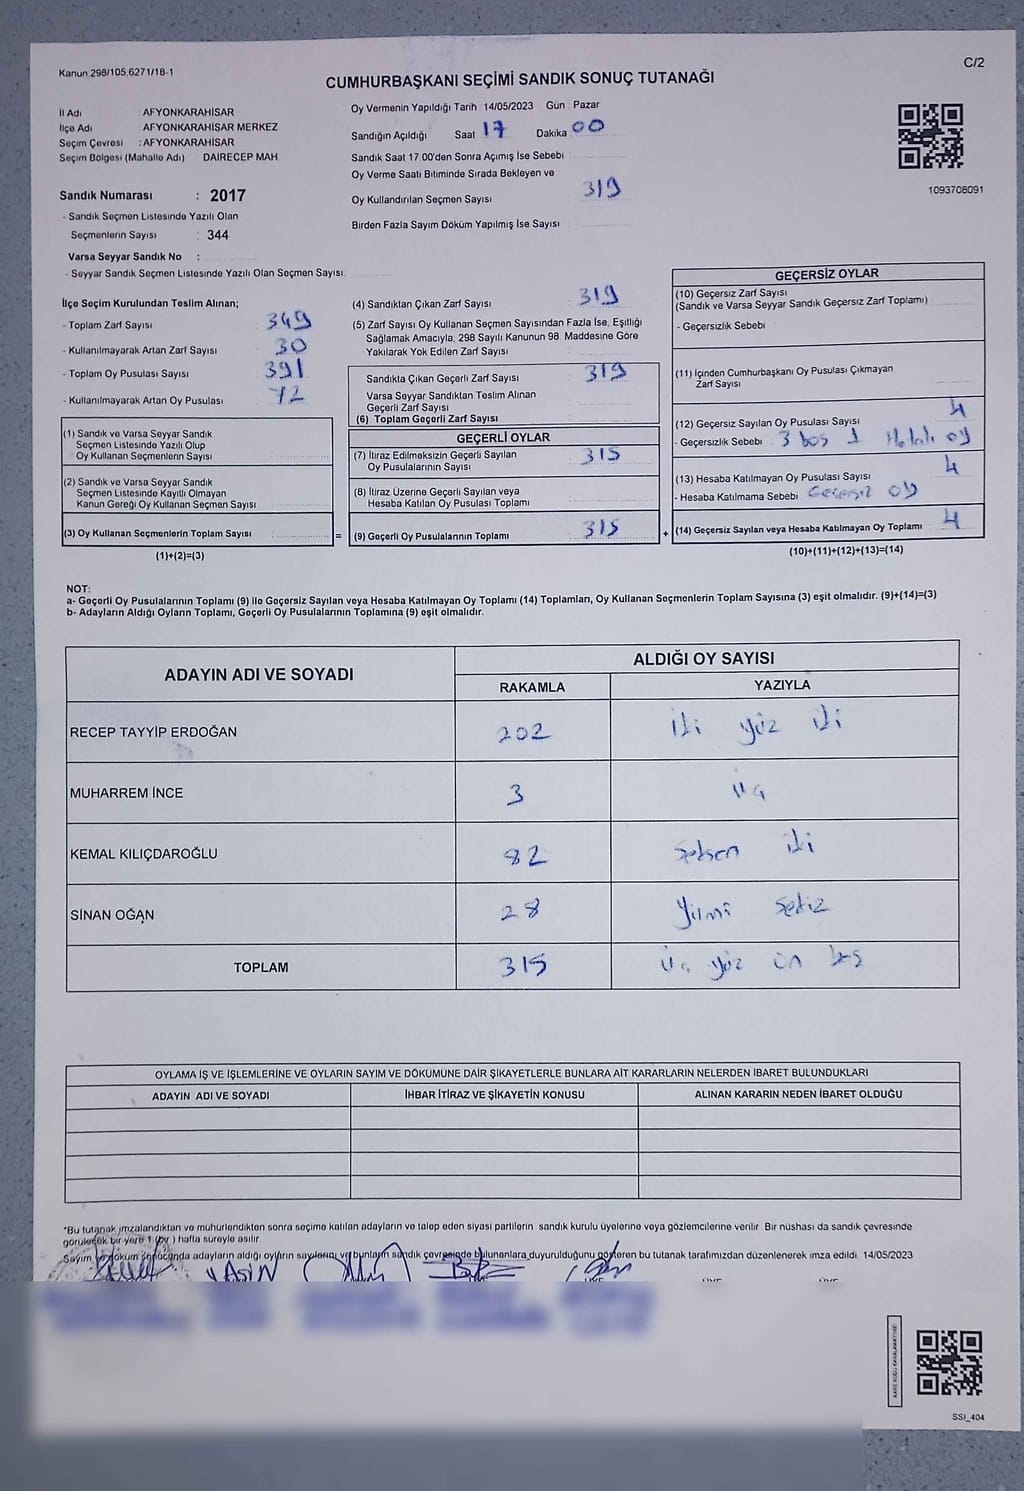 Kanun 298/105,6271/18-1
C/2
CUMHURBAŞKANI SEÇİMİ SANDIK SONUÇ TUTANAĞI
İl Adı AFYONKARAHİSAR
İlçe Adı AFYONKARAHİSAR MERKEZ
Seçim Çevresi : AFYONKARAHİSAR
Seçim Bölgesi (Mahalle Adı) DAİRECEP MAH.
Sandık Numarası : 2017
- Sandık Seçmen Listesinde Yazılı Olan
Seçmenlerin Sayısı : 344
Varsa Seyyar Sandık No :
- Seyyar Sandık Seçmen Listesinde Yazılı Olan Seçmen Sayısı:
Oy Vermenin Yapıldığı Tarih 14/05/2023 Gün : Pazar
Sandığın Açıldığı Saat 17 Dakika 00
Sandık Saat 17 00'den Sonra Açımış İse Sebebi :
Oy Verme Saati Bitiminde Sırada Bekleyen ve
Oy Kullandırılan Seçmen Sayısı 319
Birden Fazla Sayım Döküm Yapılmış İse Sayısı :
1093708091
İlçe Seçim Kurulundan Teslim Alınan;
- Toplam Zarf Sayısı : 349
- Kullanılmayarak Artan Zarf Sayısı : 30
- Toplam Oy Pusulası Sayısı : 391
- Kullanılmayarak Artan Oy Pusulası : 72
(1) Sandık ve Varsa Seyyar Sandık
Seçmen Listesinde Yazılı Olup
Oy Kullanan Seçmenlerin Sayısı
(2) Sandık ve Varsa Seyyar Sandık
Seçmen Listesinde Kayıtlı Olmayan
Kanun Gereği Oy Kullanan Seçmen Sayısı
(3) Oy Kullanan Seçmenlerin Toplam Sayısı =
(1)+(2)=(3)
(4) Sandıktan Çıkan Zarf Sayısı : 319
(5) Zarf Sayısı Oy Kullanan Seçmen Sayısından Fazla İse, Eşitliği
Sağlamak Amacıyla, 298 Sayılı Kanunun 98. Maddesine Göre
Yakılarak Yok Edilen Zarf Sayısı
Sandıkta Çıkan Geçerli Zarf Sayısı : 319
Varsa Seyyar Sandıktan Teslim Alınan
Geçerli Zarf Sayısı
(6) Toplam Geçerli Zarf Sayısı
GEÇERLİ OYLAR
(7) İtiraz Edilmeksizin Geçerli Sayılan
Oy Pusulalarının Sayısı 315
(8) İtiraz Üzerine Geçerli Sayılan veya
Hesaba Katılan Oy Pusulası Toplamı
(9) Geçerli Oy Pusulalarının Toplamı 315 +
GEÇERSİZ OYLAR
(10) Geçersiz Zarf Sayısı
(Sandık ve Varsa Seyyar Sandık Geçersiz Zarf Toplamı)
- Geçersizlik Sebebi
(11) İçinden Cumhurbaşkanı Oy Pusulası Çıkmayan
Zarf Sayısı
(12) Geçersiz Sayılan Oy Pusulası Sayısı 4
- Geçersizlik Sebebi : 3 boş 1 Hatalı oy
(13) Hesaba Katılmayan Oy Pusulası Sayısı 4
- Hesaba Katılmama Sebebi Geçersiz oy
(14) Geçersiz Sayılan veya Hesaba Katılmayan Oy Toplamı 4
(10)+(11)+(12)+(13)=(14)
NOT:
a- Geçerli Oy Pusulalarının Toplamı (9) ile Geçersiz Sayılan veya Hesaba Katılmayan Oy Toplamı (14) Toplamları, Oy Kullanan Seçmenlerin Toplam Sayısına (3) eşit olmalıdır. (9)+(14)=(3)
b- Adayların Aldığı Oyların Toplamı, Geçerli Oy Pusulalarının Toplamına (9) eşit olmalıdır.
ADAYIN ADI VE SOYADI ALDIĞI OY SAYISI
RAKAMLA YAZIYLA
RECEP TAYYİP ERDOĞAN 202 İki yüz iki
MUHARREM İNCE 3 üç
KEMAL KILIÇDAROĞLU 82 seksen iki
SİNAN OĞAN 28 Yirmi sekiz
TOPLAM 315 üç yüz on beş
OYLAMA İŞ VE İŞLEMLERİNE VE OYLARIN SAYIM VE DÖKÜMÜNE DAİR ŞİKAYETLERLE BUNLARA AİT KARARLARIN NELERDEN İBARET BULUNDUKLARI
ADAYIN ADI VE SOYADI İHBAR İTİRAZ VE ŞİKAYETİN KONUSU ALINAN KARARIN NEDEN İBARET OLDUĞU
*Bu tutanak imzalandıktan ve mühürlendikten sonra seçime katılan adayların ve talep eden siyasi partilerin sandık kurulu üyelerine veya gözlemcilerine verilir. Bir nüshası da sandık çevresinde
görülecek bir yere 1 (bir) hafta süreyle asılır.
Sayım ve döküm sonucunda adayların aldığı oyların sayılarını ve bunların sandık çevresinde bulunanlara duyurulduğunu gösteren bu tutanak tarafımızdan düzenlenerek imza edildi. 14/05/2023
YASİN
SSI_404